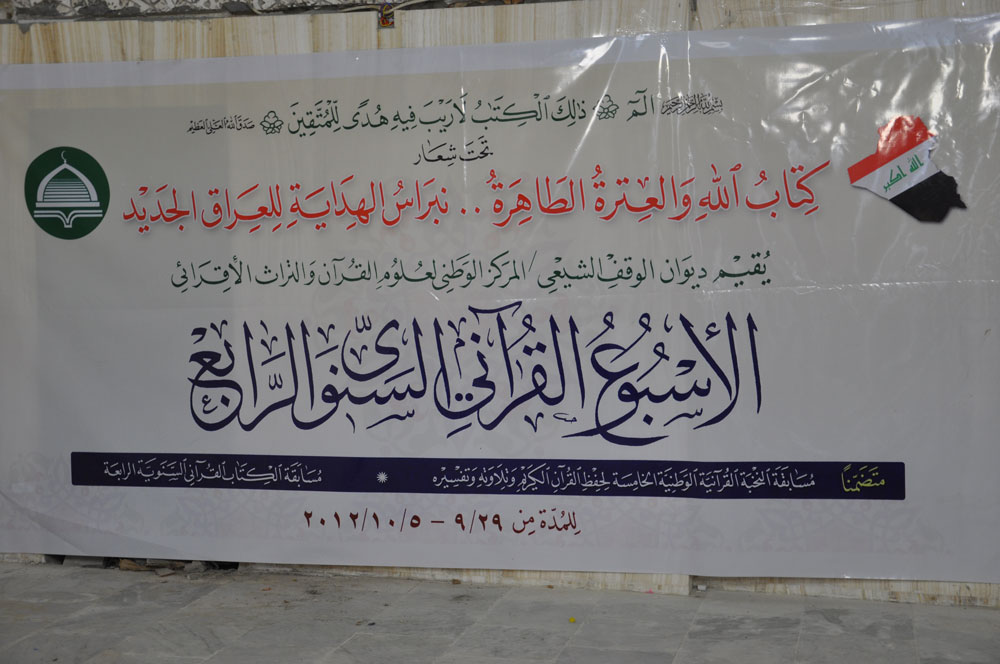 بسم الله الرحمن الرحيم الٓمٓ ۞ ذَٰلِكَ ٱلْكِتَٰبُ لَارَيْبَ فِيهِ هُدًى لِّلْمُتَّقِينَ ۞ صدق الله العلي العظيم
تحت شعار
كِتَابُ ٱللهِ وَالعِترةُ الطَاهِرَةُ .. نبرَاسُ الهِدَايَةِ لِلعِرَاق الجَدِيْد
الله اكبر
يُقيم ديوان الوقف الشيعي / المركز الوطني لعلوم القرآن والتراث الأقرائي
الأسْبُوعُ القُرآني السَنَوىّ الرَّابِع
متضمناً مسابقة النخبة القرآنية الوطنية الخامسة لحفظ القرآن الكريم وتلاوته وتفسيره * مسابقة الكتاب القرآني السنوية الرابعة
لِلمُدّة مِن ٩/٢٩ - ٢٠١٢/١٠/٥